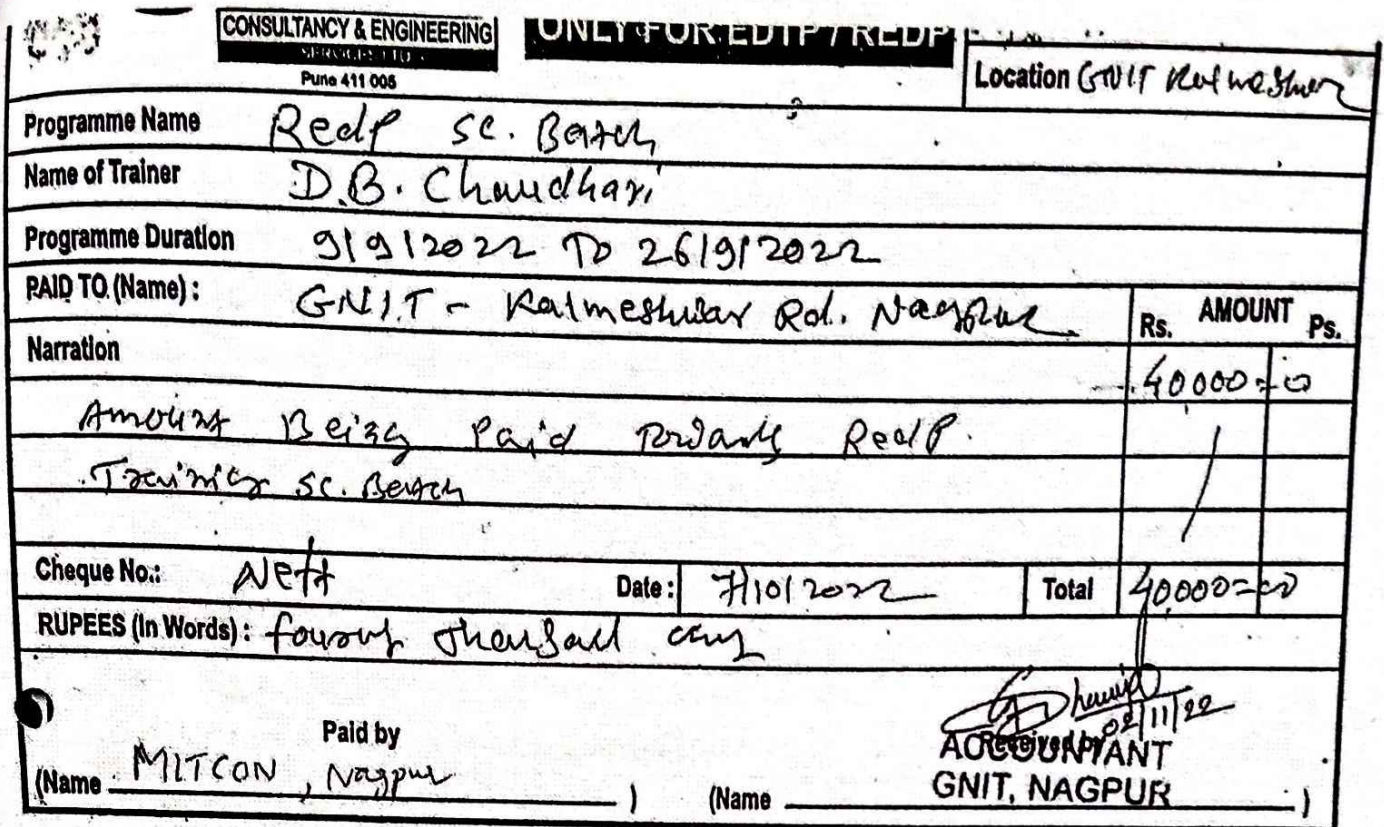 CONSULTANCY & ENGINEERING
SERVICES LTD.
Pune 411 005
ONLY FOR EDTP / REDP
Location GNIT Kalmeshwar
Programme Name Redp SC. Batch
Name of Trainer D.B. Chaudhari
Programme Duration 9/9/2022 To 26/9/2022
PAID TO (Name) : GNIT - Kalmeshwar Rd. Nagpur
AMOUNT
Rs. Ps.
Narration
40000=0
Amount Being Paid Towards RedP.
Training SC. Batch
Cheque No.: Neft Date : 7/10/2022 Total 40,000=00
RUPEES (In Words) : fourty thousand only
02/11/22
Paid by Received by
ACCOUNTANT
(Name MITCON, Nagpur ) (Name GNIT, NAGPUR )